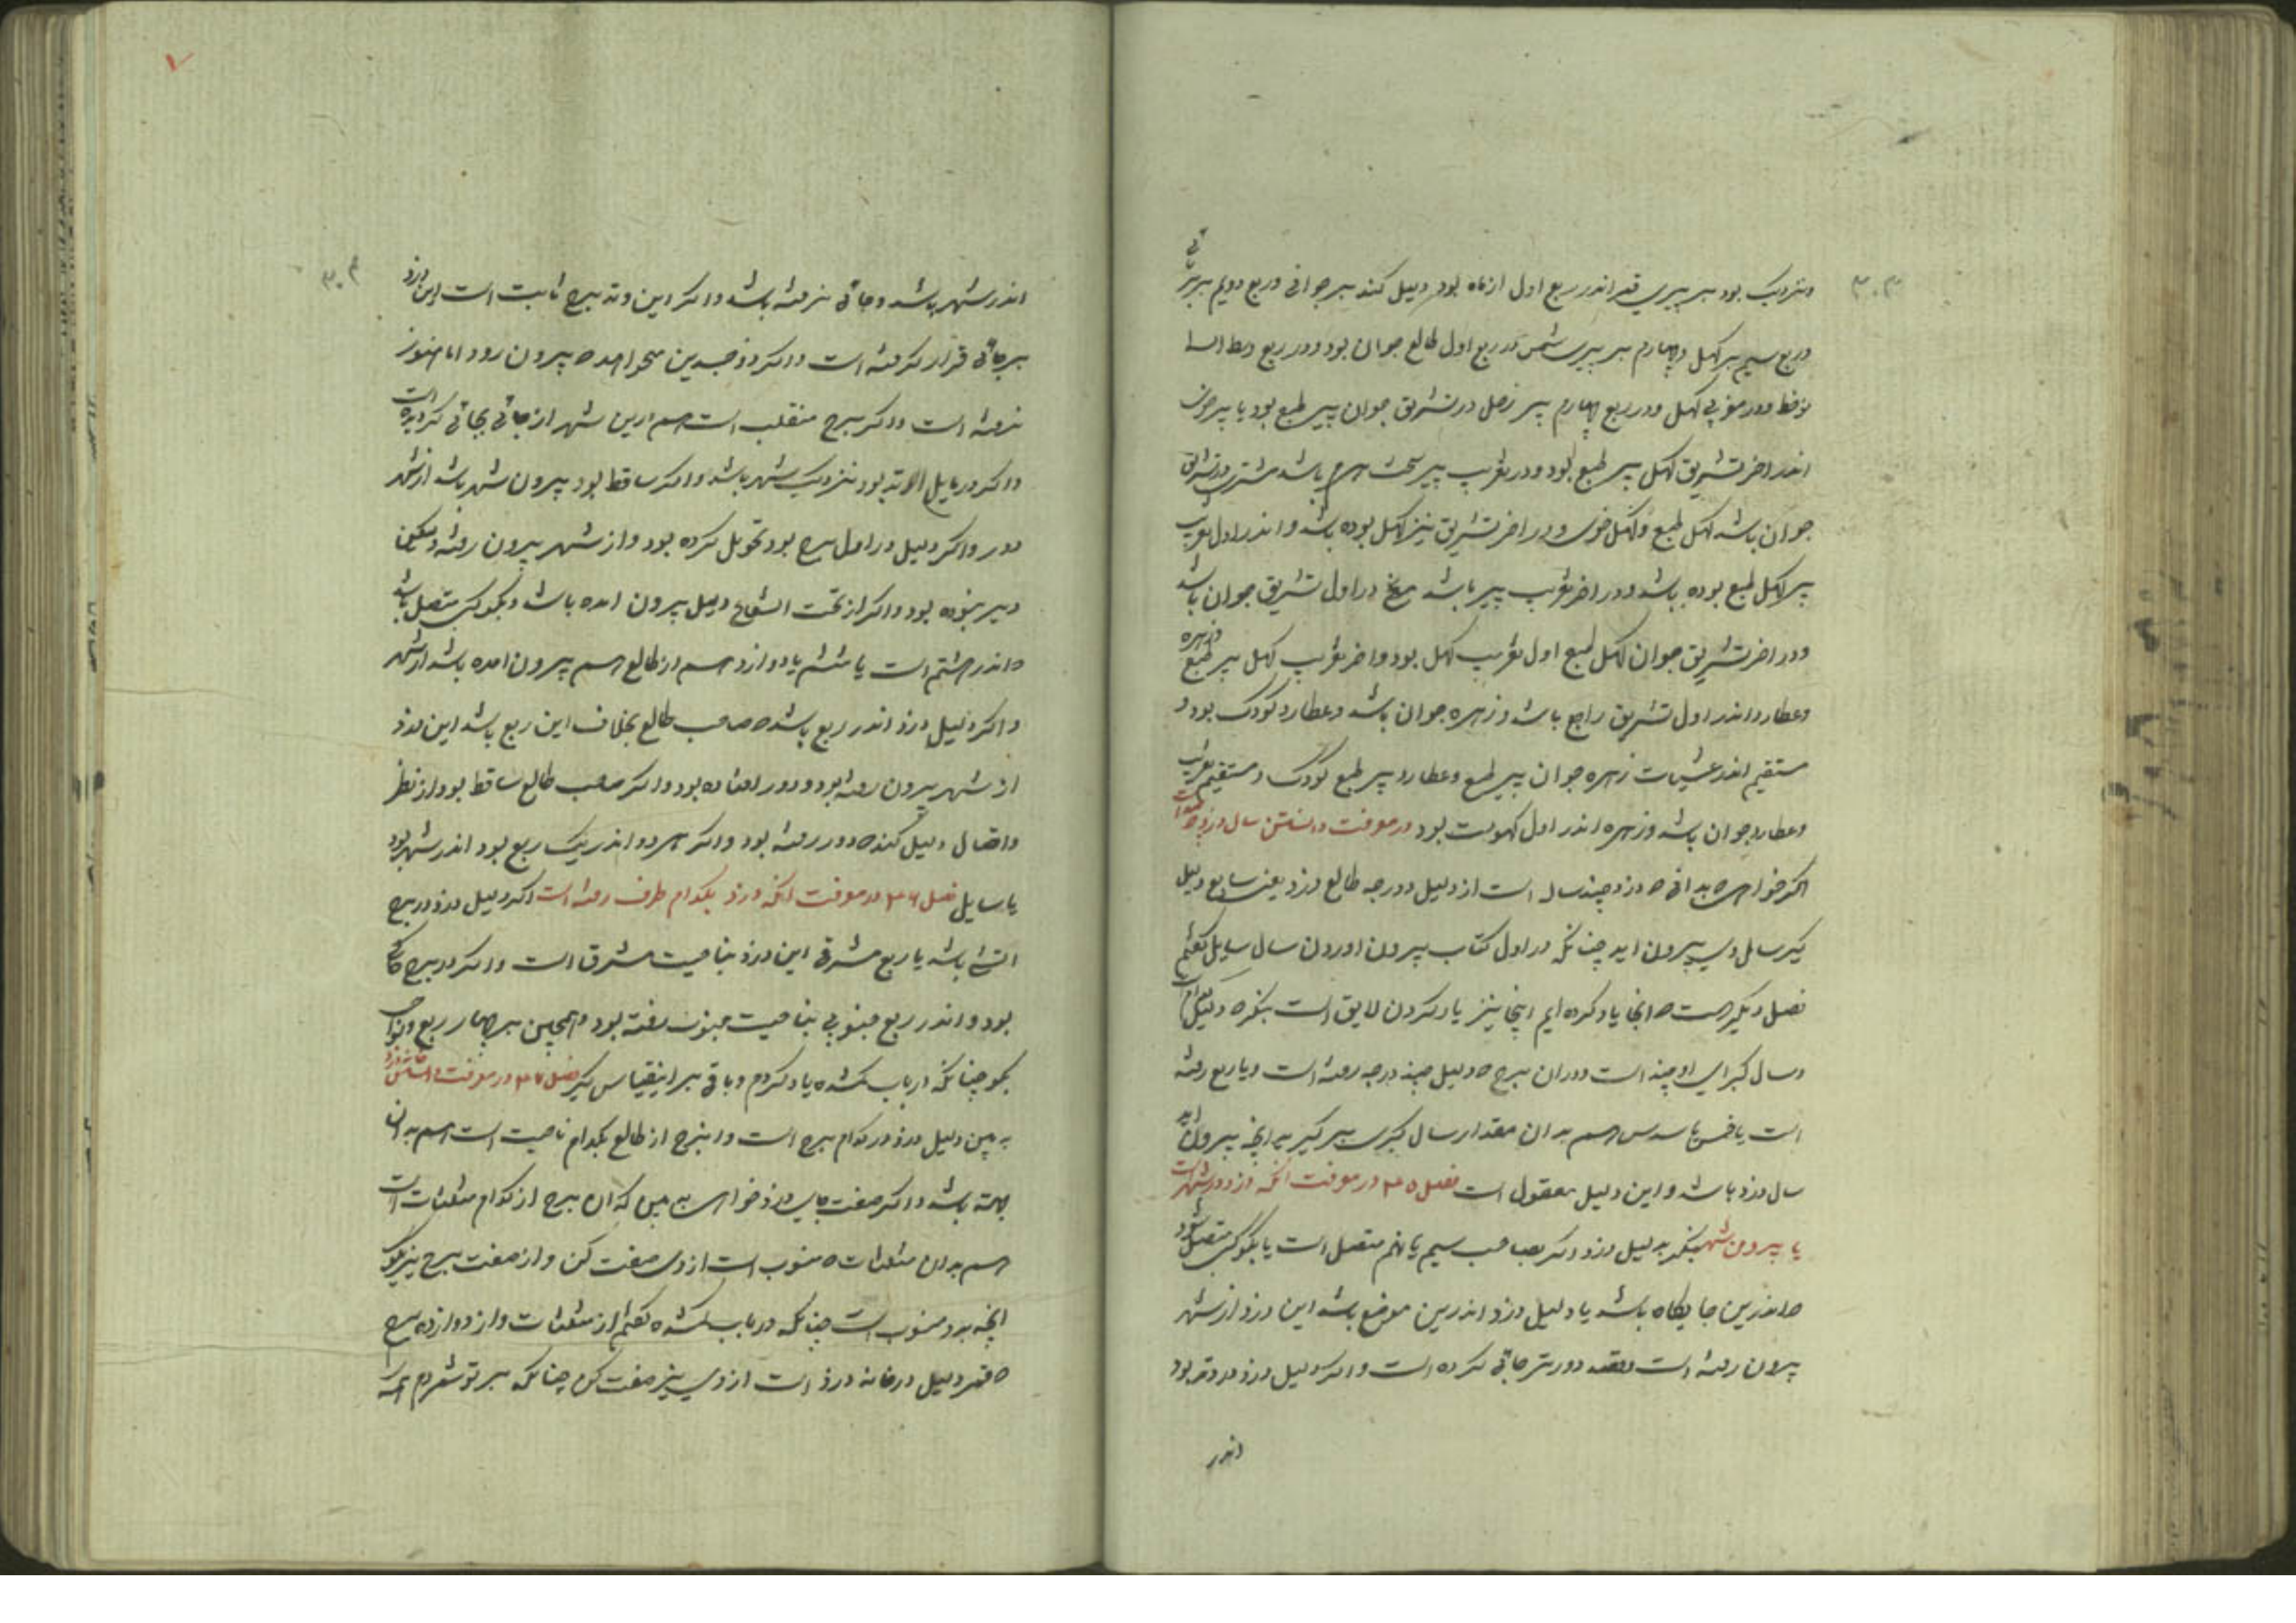 ۳۰۳
ونزدیک بود بر پیری قمر اندر ربع اول از ماه بود دلیل کند بر جوانی و ربع دویم بر برنایی
و ربع سیم بر کهل و چهارم بر پیری شمس در ربع اول طالع جوان بود و در ربع وسط السما
نوخط و در مغربی کهل و در ربع چهارم پیر زحل در تشریق جوان پیر طبع بود یا پیر جوان
اندر اخر تشریق کهل پیر طبع بود و در تغریب پیر سخت هرم باشد مشتری در تشریق
جوان باشد کهل طبع و کهل خوی و در اخر تشریق نیز کهل بوده باشد و اندر اول تغریب
پیر کهل طبع بوده باشد و در اخر تغریب پیر باشد مریخ در اول تشریق جوان باشد
و در اخر تشریق جوان کهل طبع اول تغریب کهل بود و اخر تغریب کهل پیر طبع و زهره
وعطارد اندر اول تشریق راجع باشد و زهره جوان باشد و عطارد کودک بود و
مستقیم اندر عشیات زهره جوان پیر طبع و عطارد پیر طبع کودک و مستقیم تغریب
وعطارد جوان باشد و زهره اندر اول کهولت بود در معرفت دانستن سال دزد
اگر خواهی که بدانی که دزد چند ساله است از دلیل و درجه طالع دزد یعنی سابع دلیل
گیر سال وی بیرون اید چنانکه در اول کتاب بیرون اوردن سال سایل گفتیم
فصل دیگر هست که انجا یاد کرده ایم اینجا نیز یاد کردن لایق است بنگر که دلیل کدام
وسال کبرای او چند است و دران برج که دلیل چند درجه رفته است و یا ربع رفته
است یا خمس یا سدس هم بدان مقدار سال کبری برگیر به انچه بیرون اید
سال دزد باشد و این دلیل معقول است فصل ۳۵ در معرفت انکه دزد در شهر است
یا بیرون شهر بنگر به دلیل دزد اگر بصاحب سیم یا نهم متصل است یا بکوکبی متصل شود
که اندرین جایگاه باشد یا دلیل دزد اندرین موضع باشد این دزد از شهر
بیرون رفته است و قصد دورتر جائی کرده است و اگر دلیل دزد در وتد بود
اندر
۳۰۴
اندر شهر باشد و جائی نرفته باشد و اگر این وتد برج ثابت است این دزد
بر جائی قرار گرفته است و اگر ذو جسدین میخواهد که بیرون رود اما هنوز
نرفته است و اگر برج منقلب است هم ازین شهر از جائی بجائی گردیده است
و اگر در مایل الاوتد بود نزدیک شهر باشد و اگر ساقط بود بیرون شهر باشد از شهر
دور و اگر دلیل در اول برج بود تحویل کرده بود و از شهر بیرون رفته و لیکن
دیر نبوده بود و اگر از تحت الشعاع دلیل بیرون امده باشد و بکوکبی متصل باشد
که اندر هشتم است یا ششم یا دوازدهم از طالع هم بیرون امده باشد از شهر
و اگر دلیل دزد اندر ربع باشد که صاحب طالع بخلاف این ربع باشد این دزد
از شهر بیرون رفته بود و دور افتاده بود و اگر صاحب طالع ساقط بود از نظر
واتصال دلیل کند که دور رفته بود و اگر هر دو اندر یک ربع بود اندر شهر بود
یا سایل فصل ۳۶ در معرفت انکه دزد بکدام طرف رفته است اگر دلیل دزد در برج
اتشی باشد یا ربع مشرقی این دزد بناحیت مشرق است و اگر در برج خاکی
بود و اندر ربع جنوبی بناحیت جنوب رفته بود و همچنین بر چهار ربع و نواحی
بگو چنانکه در باب گمشده یاد کردم و باقی بر اینقیاس گیر فصل ۳۷ در معرفت شناختن خانه دزد
به بین دلیل دزد در کدام برج است و این برج از طالع بکدام ناحیت است هم بدان
جهته باشد و اگر صفت جای دزد خواهی ببین که ان برج از کدام مثلثات است
هم بدان مثلثات که منسوب است از وی صفت کن و از صفت برج نیز بگو
انچه بدو منسوب است چنانکه در باب گمشده گفتیم از مثلثات و از دوازده برج
که قمر دلیل در خانه دزد است از وی نیز صفت کن چنانکه بر تو شمردم